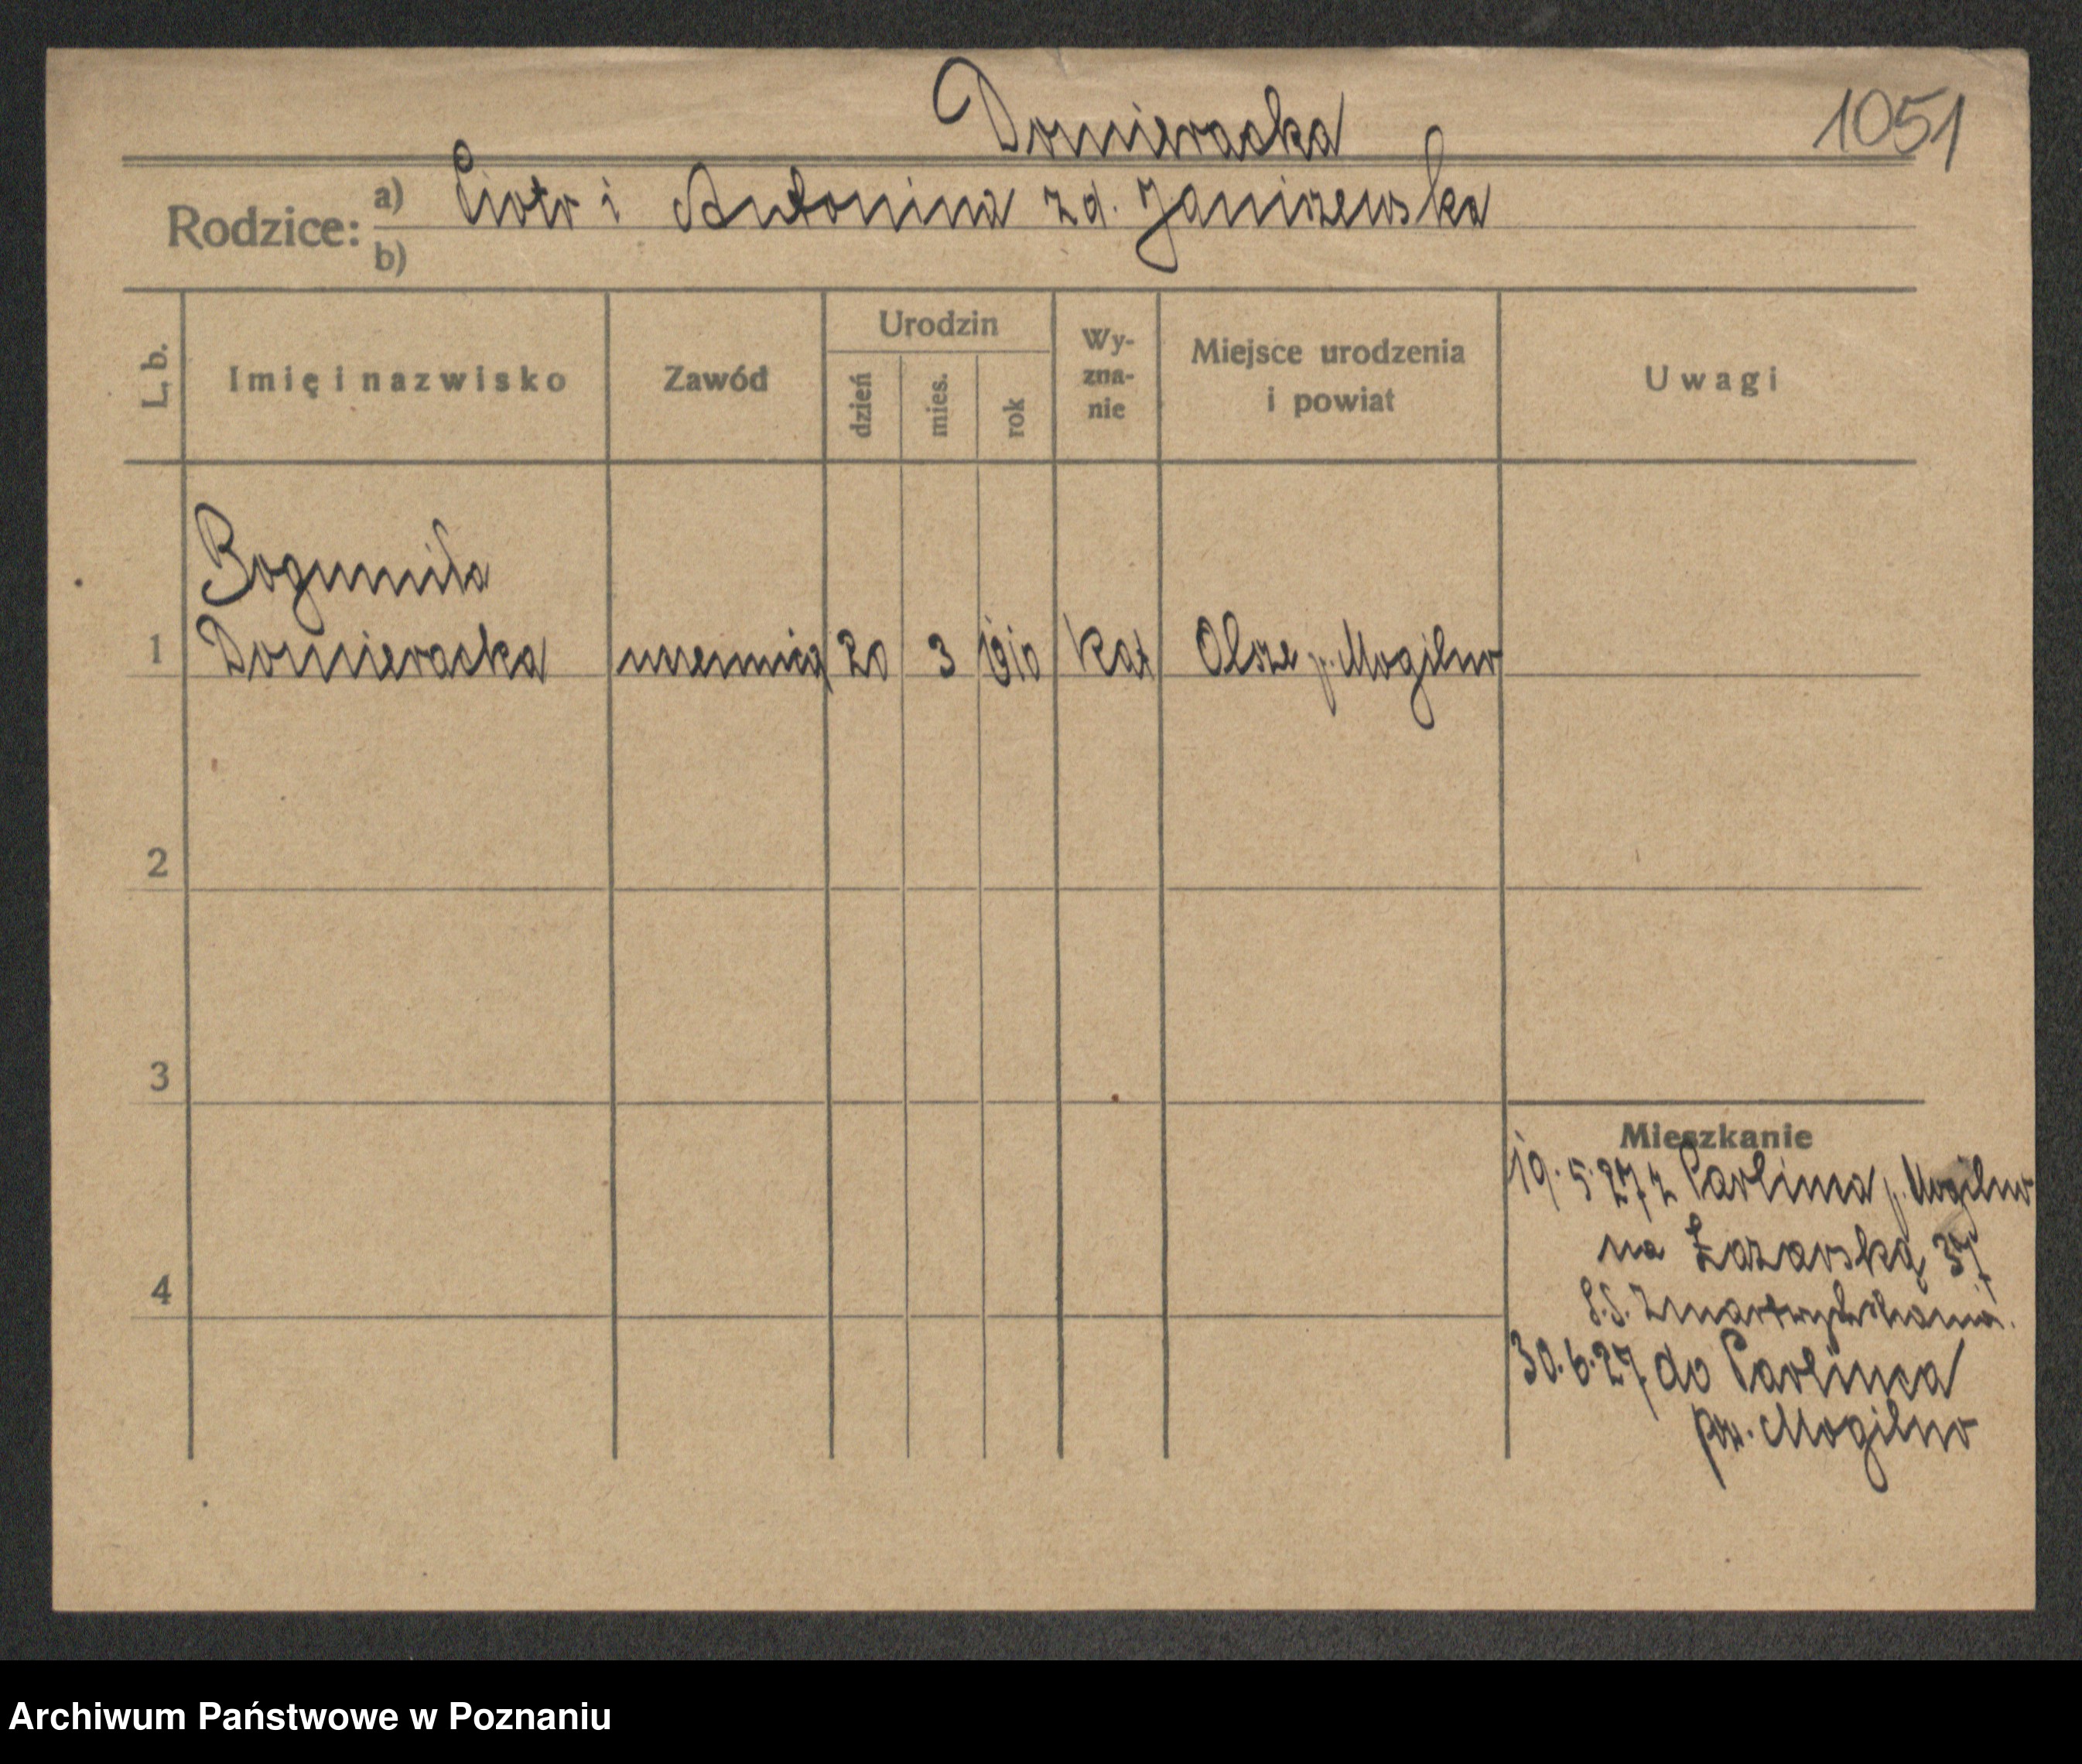 Domieracka
1051
Rodzice: a) Piotr i Antonina z d. Janiszewska
b)
L. b.
Imię i nazwisko
Zawód
Urodzin
dzień
mies.
rok
Wy-
zna-
nie
Miejsce urodzenia
i powiat
Uwagi
Bogumiła
1 Domieracka uczennica 20 3 1910 kat Olsze p. Mogilno
2
3
4
Mieszkanie
19.5.27 z Parlina p. Mogilno
na Łazarską 37
S.S. Zmartwychwstania.
30.6.27 do Parlina
pow. Mogilno
Archiwum Państwowe w Poznaniu